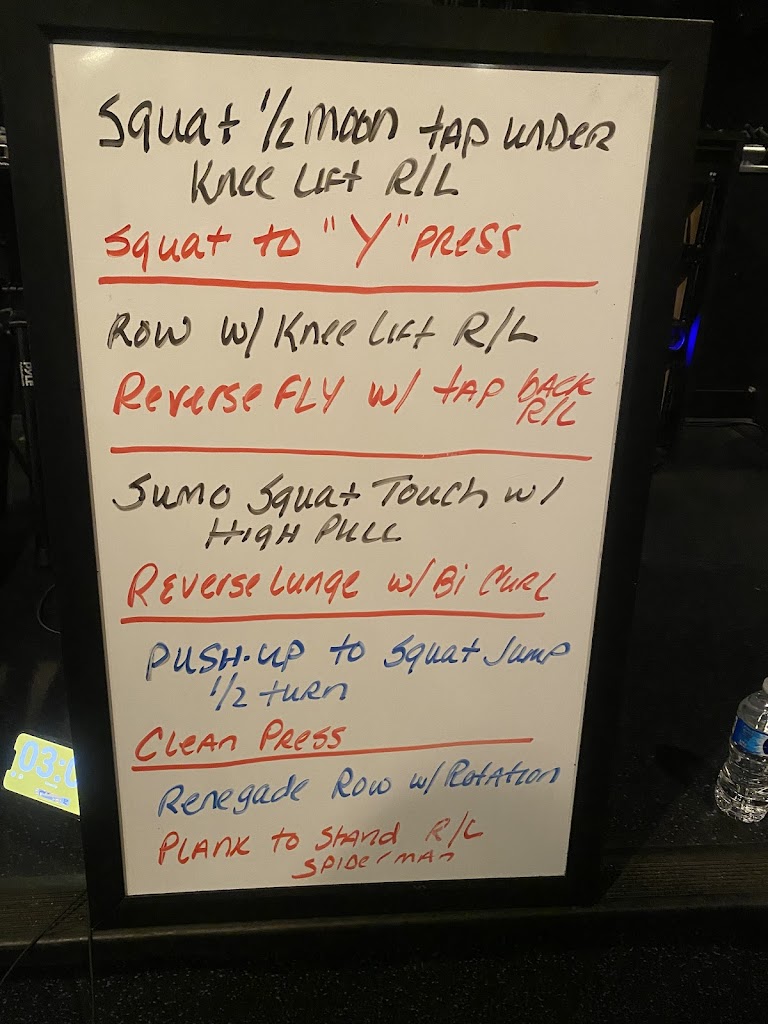 Squat 1/2 moon tap under
Knee Lift R/L
Squat to "Y" press
Row w/ Knee Lift R/L
Reverse FLY w/ tap back
R/L
Sumo Squat Touch w/
High Pull
Reverse Lunge w/ Bi Curl
Push-up to Squat Jump
1/2 turn
Clean Press
Renegade Row w/ Rotation
Plank to Stand R/L
Spiderman
03:0
PYLE